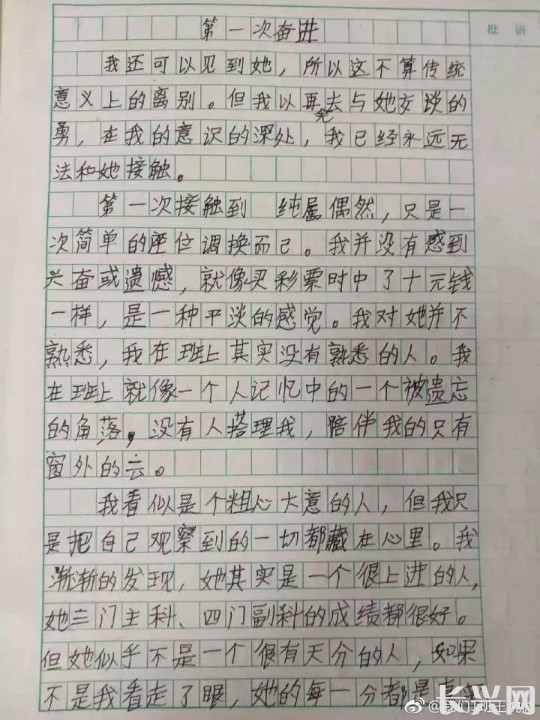 第一次奋进
批语
我还可以见到她，所以这不算传统
意义上的离别。但我以再失去与她交谈的
勇，在我的意识的深处，我已经永远无
法和她接触。
第一次接触到 纯属偶然，只是一
次简单的座位调换而已。我并没有感到
兴奋或遗憾，就像买彩票时中了十元钱
一样，是一种平淡的感觉。我对她并不
熟悉，我在班上其实没有熟悉的人。我
在班上就像一个人记忆中的一个被遗忘
的角落，没有人搭理我，陪伴我的只有
窗外的云。
我看似是个粗心大意的人，但我只
是把自己观察到的一切都藏在心里。我
渐渐的发现，她其实是一个很上进的人，
她三门主科、四门副科的成绩都很好。
但她似乎不是一个很有天分的人，如果
不是我看走了眼，她的每一分都是
长兴网